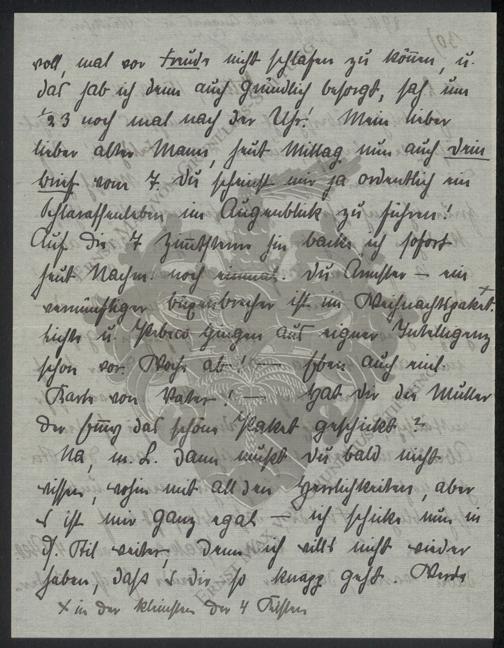 voll, mal vor Freude nicht schlafen zu können, u.
das hab ich denn auch gründlich besorgt, sah um
1/2 3 noch mal nach der Uhr! Mein lieber
lieber alter Mann, heut Mittag nun auch dein
Brief vom 7. Du scheinst mir ja ordentlich ein
Schlaraffenleben im Augenblick zu führen!
Auf die 7 Zimtsterne hin backe ich sofort
heut Nachm. noch einmal. Du Ärmster – ein
vernünftiger ist im Weihnachtspaket.+
Lichte u. gingen aus eigner Intelligenz
schon vor. Woche ab! – Eben auch eine
Karte von Vater! – Hat dir die Mutter
der das schöne Paket geschickt?
Na, m. L. dann musst Du bald nicht
wissen, wohin mit all den Herrlichkeiten, aber
s ist mir ganz egal – ich schicke nun in
d. Stil weiter, denn ich wills nicht wieder
haben, dass s dir so knapp geht. Werde
x in der kleinsten der 4 Kisten